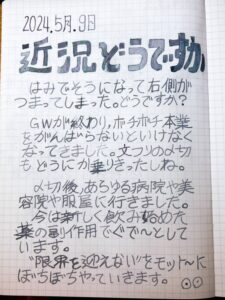 2024.5月.9日
近況どうですか
はみでそうになって右側が
つまってしまった。どうですか？
GWが終わり、ボチボチ本業
をがんばらないといけなく
なってきました。文フリの〆切
もどうにか乗りきったしね。
〆切後、あらゆる病院や美
容院や服屋に行きました。
今は新しく飲み始めた
薬の副作用でぐで〜として
います。
"限界を迎えない"をモットーに
ぼちぼちやっていきます。